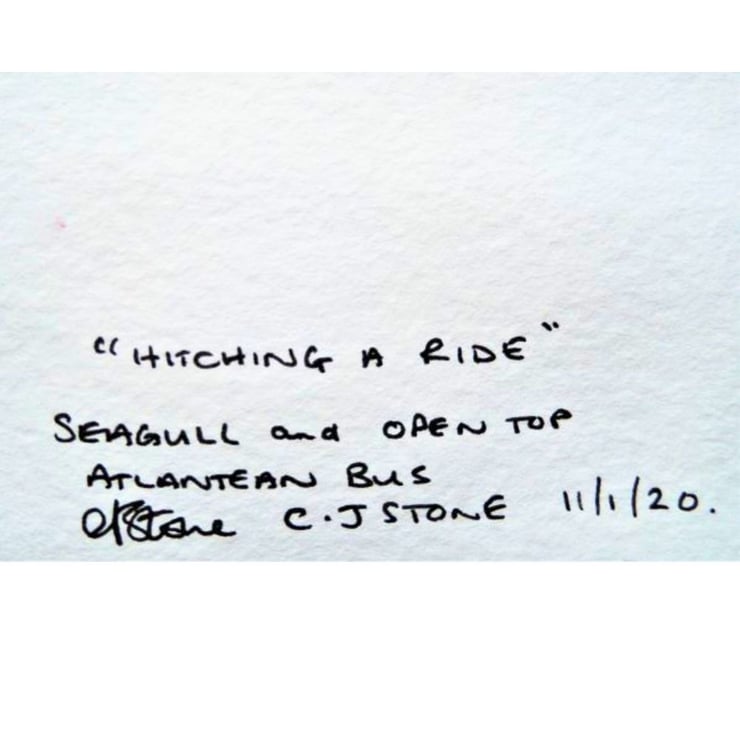 "HITCHING A RIDE"
SEAGULL and OPEN TOP
ATLANTEAN BUS
CJStone C.J STONE 11/1/20.